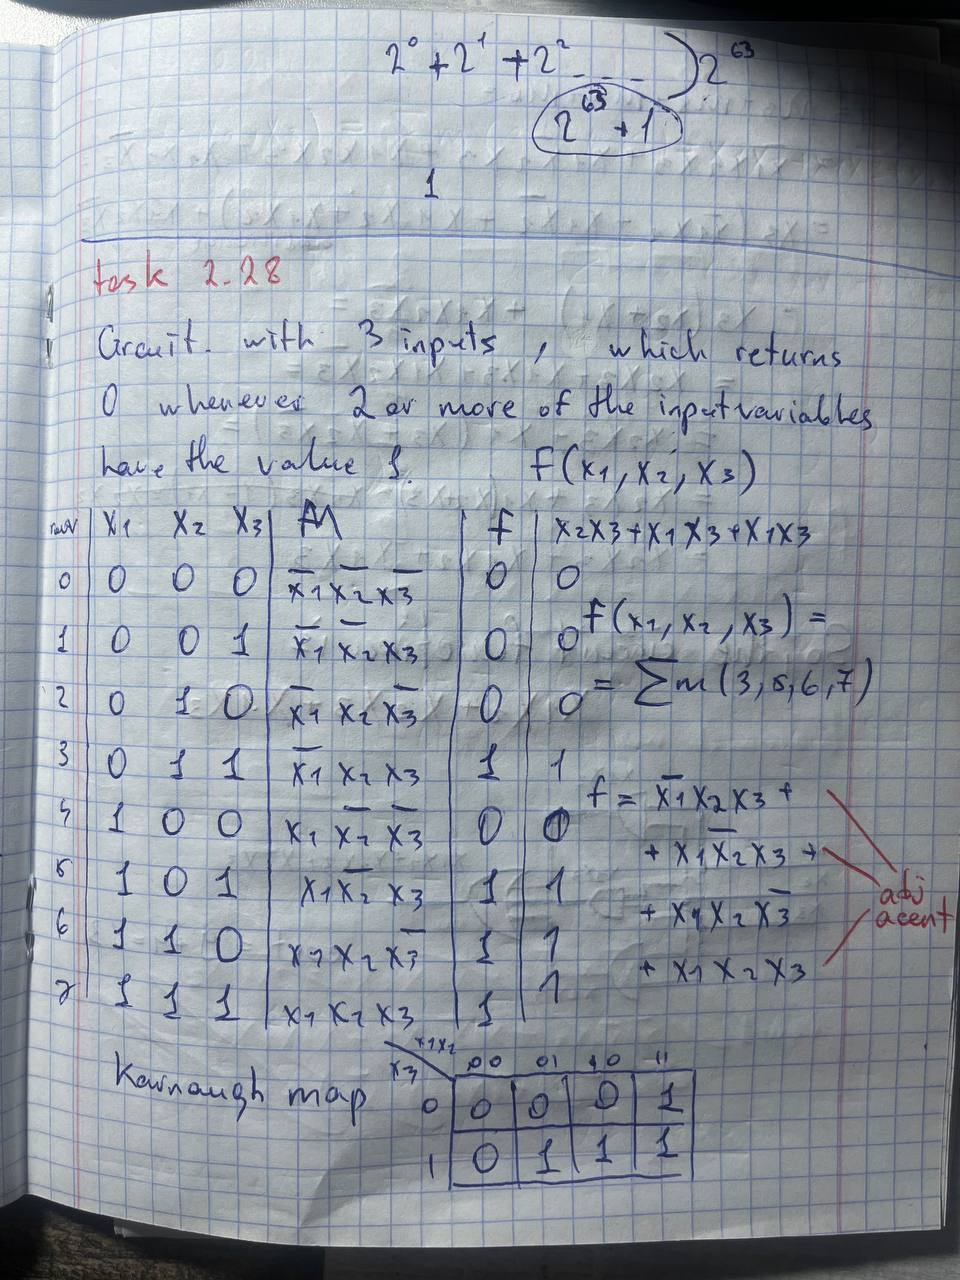 2⁰ + 2¹ + 2² _ _ _ ) 2⁶³
2⁶³ + 1
1
task 2.28
Circuit. with 3 inputs, which returns
0 whenever 2 or more of the input variables
have the value 1. f(x₁, x₂, x₃)
row x₁ x₂ x₃ M f x₂x₃+x₁x₃+x₁x₃
0 0 0 0 x̅₁x̅₂x̅₃ 0 0
1 0 0 1 x̅₁x̅₂x₃ 0 0 f(x₁, x₂, x₃) =
2 0 1 0 x̅₁x₂x̅₃ 0 0 = Σm(3,5,6,7)
3 0 1 1 x̅₁x₂x₃ 1 1 f = x̅₁x₂x₃ +
4 1 0 0 x₁x̅₂x̅₃ 0 0 + x₁x̅₂x₃ +
5 1 0 1 x₁x̅₂x₃ 1 1 adj
6 1 1 0 x₁x₂x̅₃ 1 1 + x₁x₂x̅₃ acent
7 1 1 1 x₁x₂x₃ 1 1 + x₁x₂x₃
Karnaugh map x₃ x₁x₂ 00 01 10 11
0 0 0 0 1
1 0 1 1 1